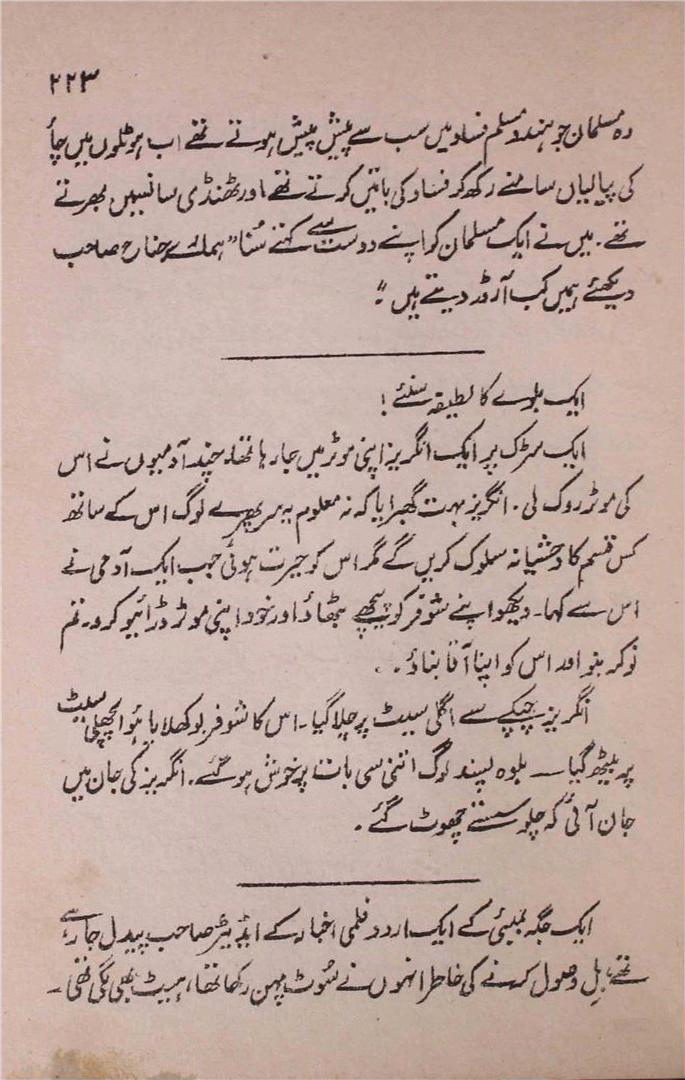 ۲۲۳
وہ مسلمان جو ہندو مسلم فساد میں سب سے پیش پیش ہوتے تھے اب ہوٹلوں میں چائے
کی پیالیاں سامنے رکھ کر فساد کی باتیں کرتے تھے اور ٹھنڈی سانسیں بھرتے
تھے۔ میں نے ایک مسلمان کو اپنے دوست سے کہتے سُنا "ہمارے جناح صاحب
دیکھئے ہمیں کب آرڈر دیتے ہیں"۔
ایک بلوے کا لطیفہ سنئے!
ایک سڑک پر ایک انگریز اپنی موٹر میں جا رہا تھا۔ چند آدمیوں نے اس
کی موٹر روک لی۔ انگریز بہت گھبرایا کہ نہ معلوم یہ سر پھرے لوگ اس کے ساتھ
کس قسم کا وحشیانہ سلوک کریں گے مگر اس کو حیرت ہوئی جب ایک آدمی نے
اس سے کہا۔ دیکھو اپنے شوفر کو پیچھے بٹھاؤ اور خود اپنی موٹر ڈرائیو کرو۔ تم
نوکر بنو اور اس کو اپنا آقا بناؤ۔
انگریز چپکے سے اگلی سیٹ پر چلا گیا۔ اس کا شوفر بوکھلایا ہوا پچھلی سیٹ
پر بیٹھ گیا — بلوہ پسند لوگ اتنی سی بات پر خوش ہو گئے۔ انگریز کی جان میں
جان آئی کہ چلو سستے چھوٹ گئے۔
ایک جگہ بمبئی کے ایک اردو فلمی اخبار کے ایڈیٹر صاحب پیدل جا رہے
تھے، بل وصول کرنے کی خاطر انہوں نے سُوٹ پہن رکھا تھا، ہیٹ بھی لگی تھی۔